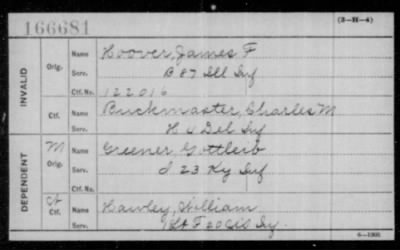 166681
(3-H-4)
INVALID
Orig.
Name Hoover, James F
Serv. B 87 Ill Inf
Ctf. No. 122016
Ctf.
Name Buckmaster, Charles M
Serv. H 4 Del Inf
DEPENDENT
M
Orig.
Name Greener, Gottleib
Serv. I 23 Ky Inf
Ctf. No.
Ctf.
Name Hawley, William
Serv. F 20 Inf
6-1905